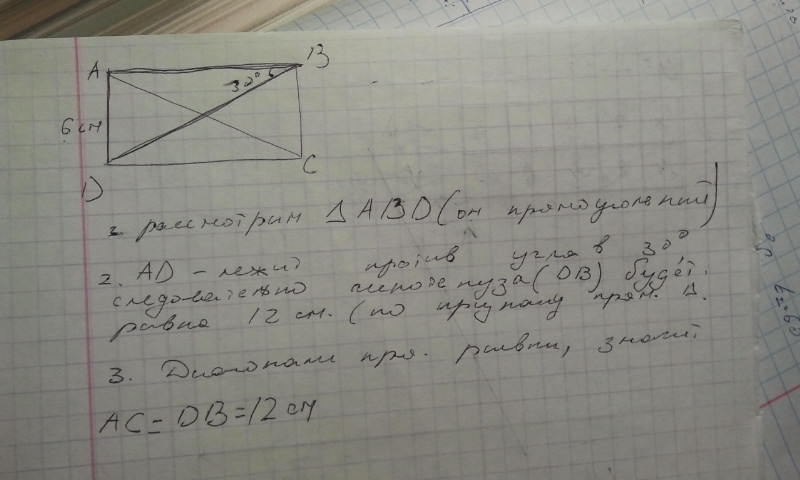 A
B
30°
6 см
D
C
1. рассмотрим Δ ABD (он прямоугольный)
2. AD - лежит против угла в 30°
следовательно гипотенуза (DB) будет
равна 12 см. (по признаку прям. Δ.
3. Диагонали пря. равны, значит
AC = DB = 12 см